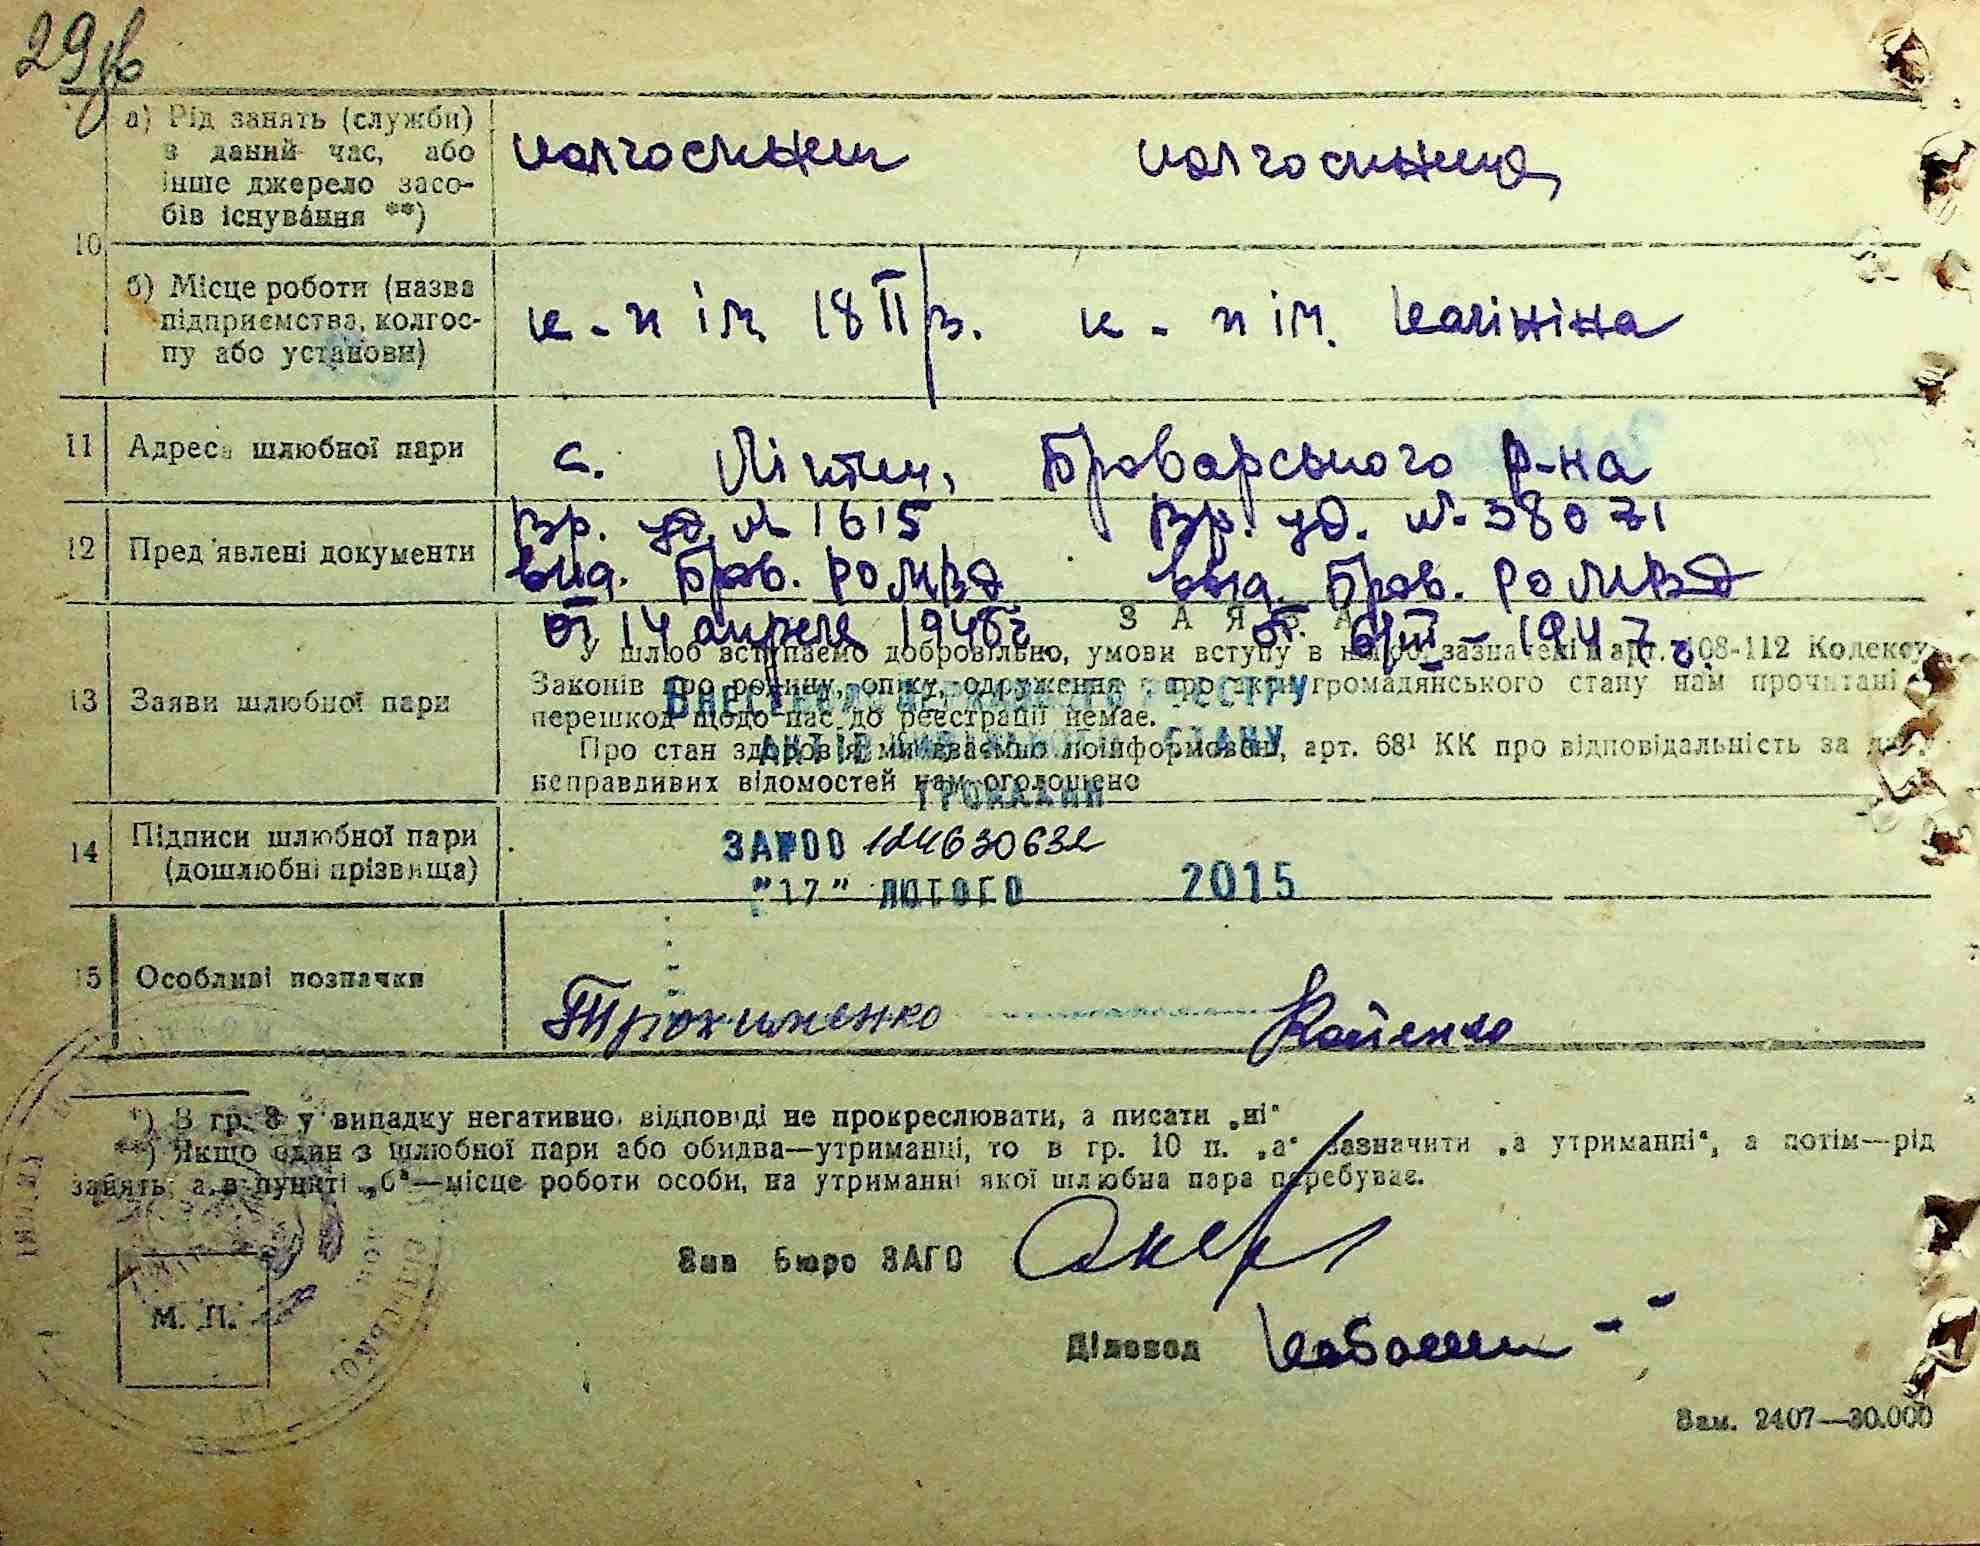 29
а) Рід занять (служби) колгоспник колгоспниця
в даний час, або
інше джерело засо-
бів існування **)
10
б) Місце роботи (назва к-п ім. 18 ІІ/з. к-п ім. Калініна
підприємства, колгос-
пу або установи)
11 Адреса шлюбної пари с. Літки, Броварського р-на
12 Пред'явлені документи вр. уд. № 1615 вр. уд. № 38071
вид. Бров. РО МВД выд. Бров. РО МВД
от 14 апреля 1946 г. от 6/III - 1947 г.
З А Я В А
13 Заяви шлюбної пари
У шлюб вступаємо добровільно, умови вступу в шлюб, зазначені в арт. 108-112 Кодексу
Законів про родину, опіку, одруження і про акти громадянського стану нам прочитані,
перешкод щодо нас до реєстрації немає.
Про стан здоров'я ми взаємно поінформовані, арт. 68¹ КК про відповідальність за
неправдивих відомостей нам оголошено
ВНЕСЕНО ДО ДЕРЖАВНОГО РЕЄСТРУ
АКТІВ ЦИВІЛЬНОГО СТАНУ
ГРОМАДЯН
14 Підписи шлюбної пари
(дошлюбні прізвища)
ЗА №00 124630632
"17" ЛЮТОГО 2015
15 Особливі позначки
Трохименко Копенко
*) В гр. 8 у випадку негативної відповіді не прокреслювати, а писати „ні"
**) Якщо один з шлюбної пари або обидва—утриманці, то в гр. 10 п. „а" зазначити „а утриманні", а потім—рід
занять, а в пункті „б"—місце роботи особи, на утриманні якої шлюбна пара перебуває.
Зав бюро ЗАГС
Діловод
М. П.
Зам. 2407—30.000